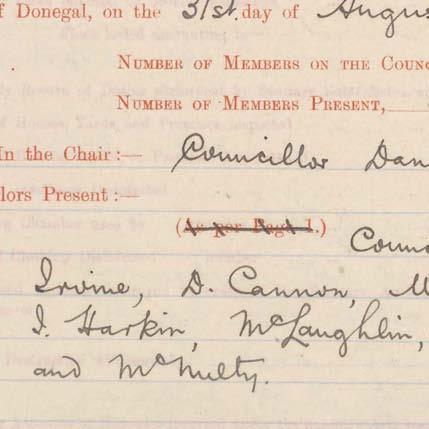 f Donegal, on the 31st. day of Augus
NUMBER OF MEMBERS ON THE COUNC
NUMBER OF MEMBERS PRESENT,
In the Chair:— Councillor Dan
lors Present:—
(As per Page 1.)
Counc
Irvine, D. Cannon, M
J. Harkin, McLaughlin,
and McNulty.